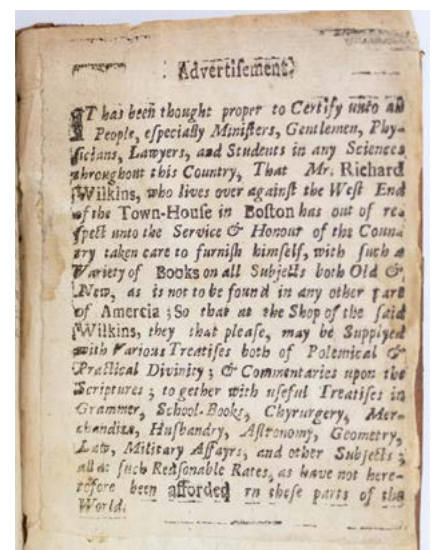 Advertiſement.
IT has been thought proper to Certify unto all
People, eſpecially Miniſters, Gentlemen, Phy-
ſicians, Lawyers, and Students in any Sciences
throughout this Country, That Mr. Richard
Wilkins, who lives over againſt the Weſt End
of the Town-Houſe in Boſton has out of re-
ſpect unto the Service & Honour of this Coun-
try taken care to furniſh himſelf, with ſuch a
Variety of Books on all Subjects both Old &
New, as is not to be found in any other part
of Amercia ; So that at the Shop of the ſaid
Wilkins, they that pleaſe, may be Supplyed
with Various Treatiſes both of Polemical &
Practical Divinity ; & Commentaries upon the
Scriptures ; to gether with uſeful Treatiſes in
Grammer, School-Books, Chyrurgery, Mer-
chandize, Huſbandry, Aſtronomy, Geometry,
Law, Military Affayrs, and other Subjects ;
all at ſuch Reaſonable Rates, as have not here-
tofore been afforded rn theſe parts of the
World.